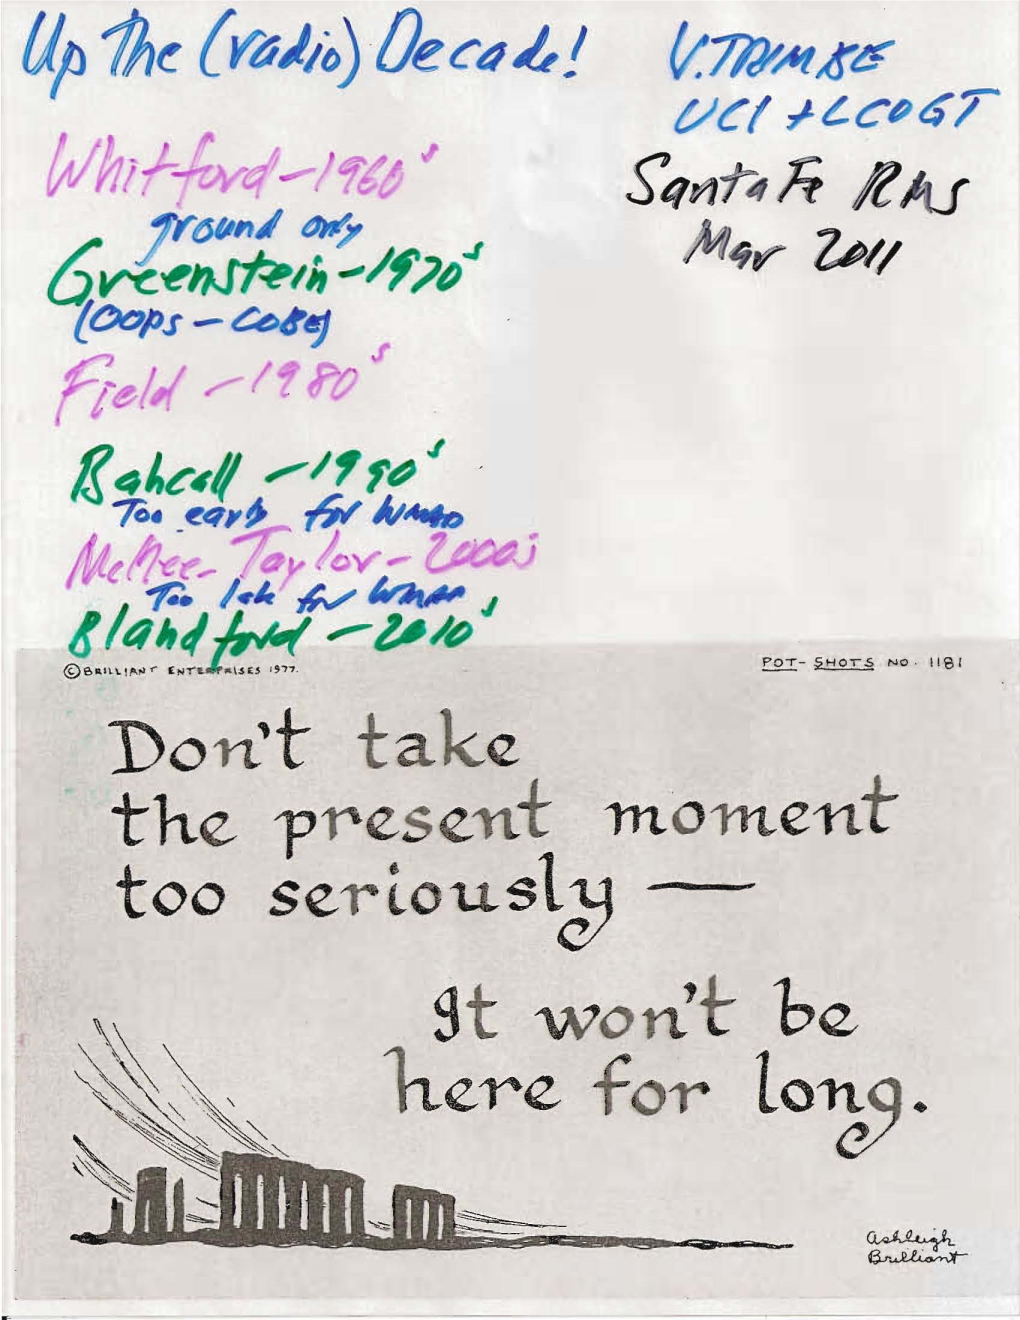 Up The (radio) Decade!
V. TRIMBLE
UCI + LCOGT
Santa Fe RMS
Mar 2011
Whitford - 1960's
ground only
Greenstein - 1970's
(Oops - COBE)
Field - 1980's
Bahcall - 1990's
Too early for WMAP
McKee-Taylor - 2000s
Too late for WMAP
Blandford - 2010's
© BRILLIANT ENTERPRISES 1977.
POT-SHOTS NO. 1181
Don't take
the present moment
too seriously —
It won't be
here for long.
Ashleigh
Brilliant